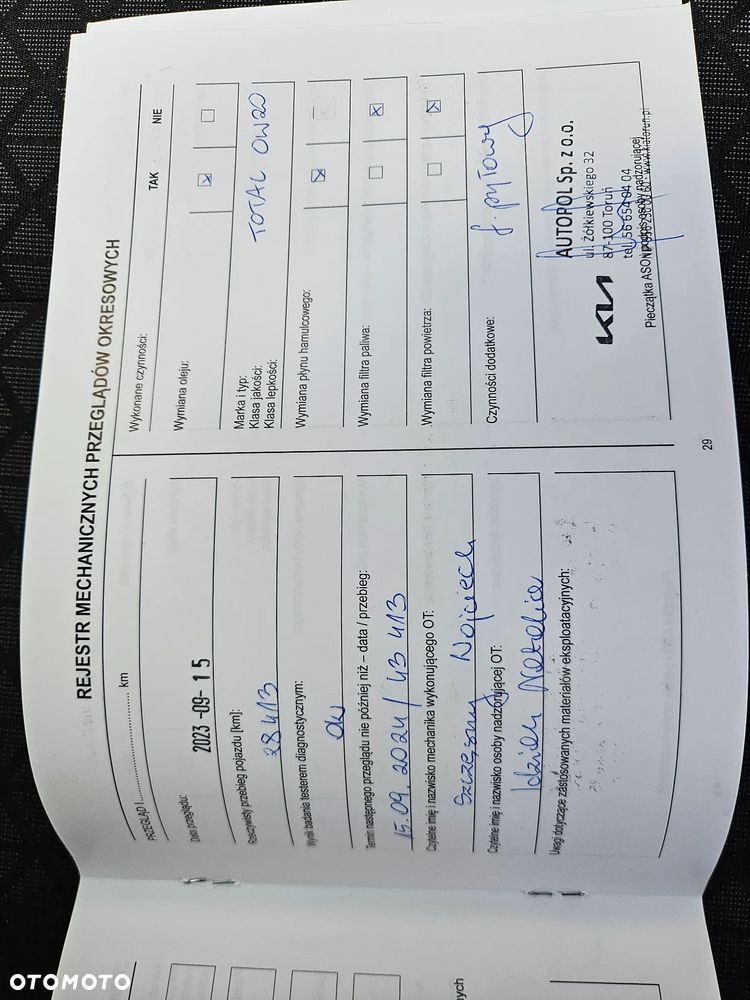 REJESTR MECHANICZNYCH PRZEGLĄDÓW OKRESOWYCH
PRZEGLĄD I............................ km
Data przeglądu:
2023 -09- 15
Rzeczywisty przebieg pojazdu [km]:
28413
Wynik badania testerem diagnostycznym:
OK
Termin następnego przeglądu nie później niż – data / przebieg:
15.09.2024/ 43 413
Czytelne imię i nazwisko mechanika wykonującego OT:
Szczęsny Wojciech
Czytelne imię i nazwisko osoby nadzorującej OT:
Idziak Natalia
Uwagi dotyczące zastosowanych materiałów eksploatacyjnych:
Wykonane czynności:
TAK NIE
Wymiana oleju:
Marka i typ:
Klasa jakości:
Klasa lepkości:
TOTAL 0W20
Wymiana płynu hamulcowego:
Wymiana filtra paliwa:
Wymiana filtra powietrza:
Czynności dodatkowe:
f. pyłowy
KIA
AUTOPOL Sp. z o.o.
ul. Żółkiewskiego 32
87-100 Toruń
tel. 56 654 04 04
www.kiatorun.pl
Pieczątka ASO i podpis osoby nadzorującej
29
ych
OTOMOTO